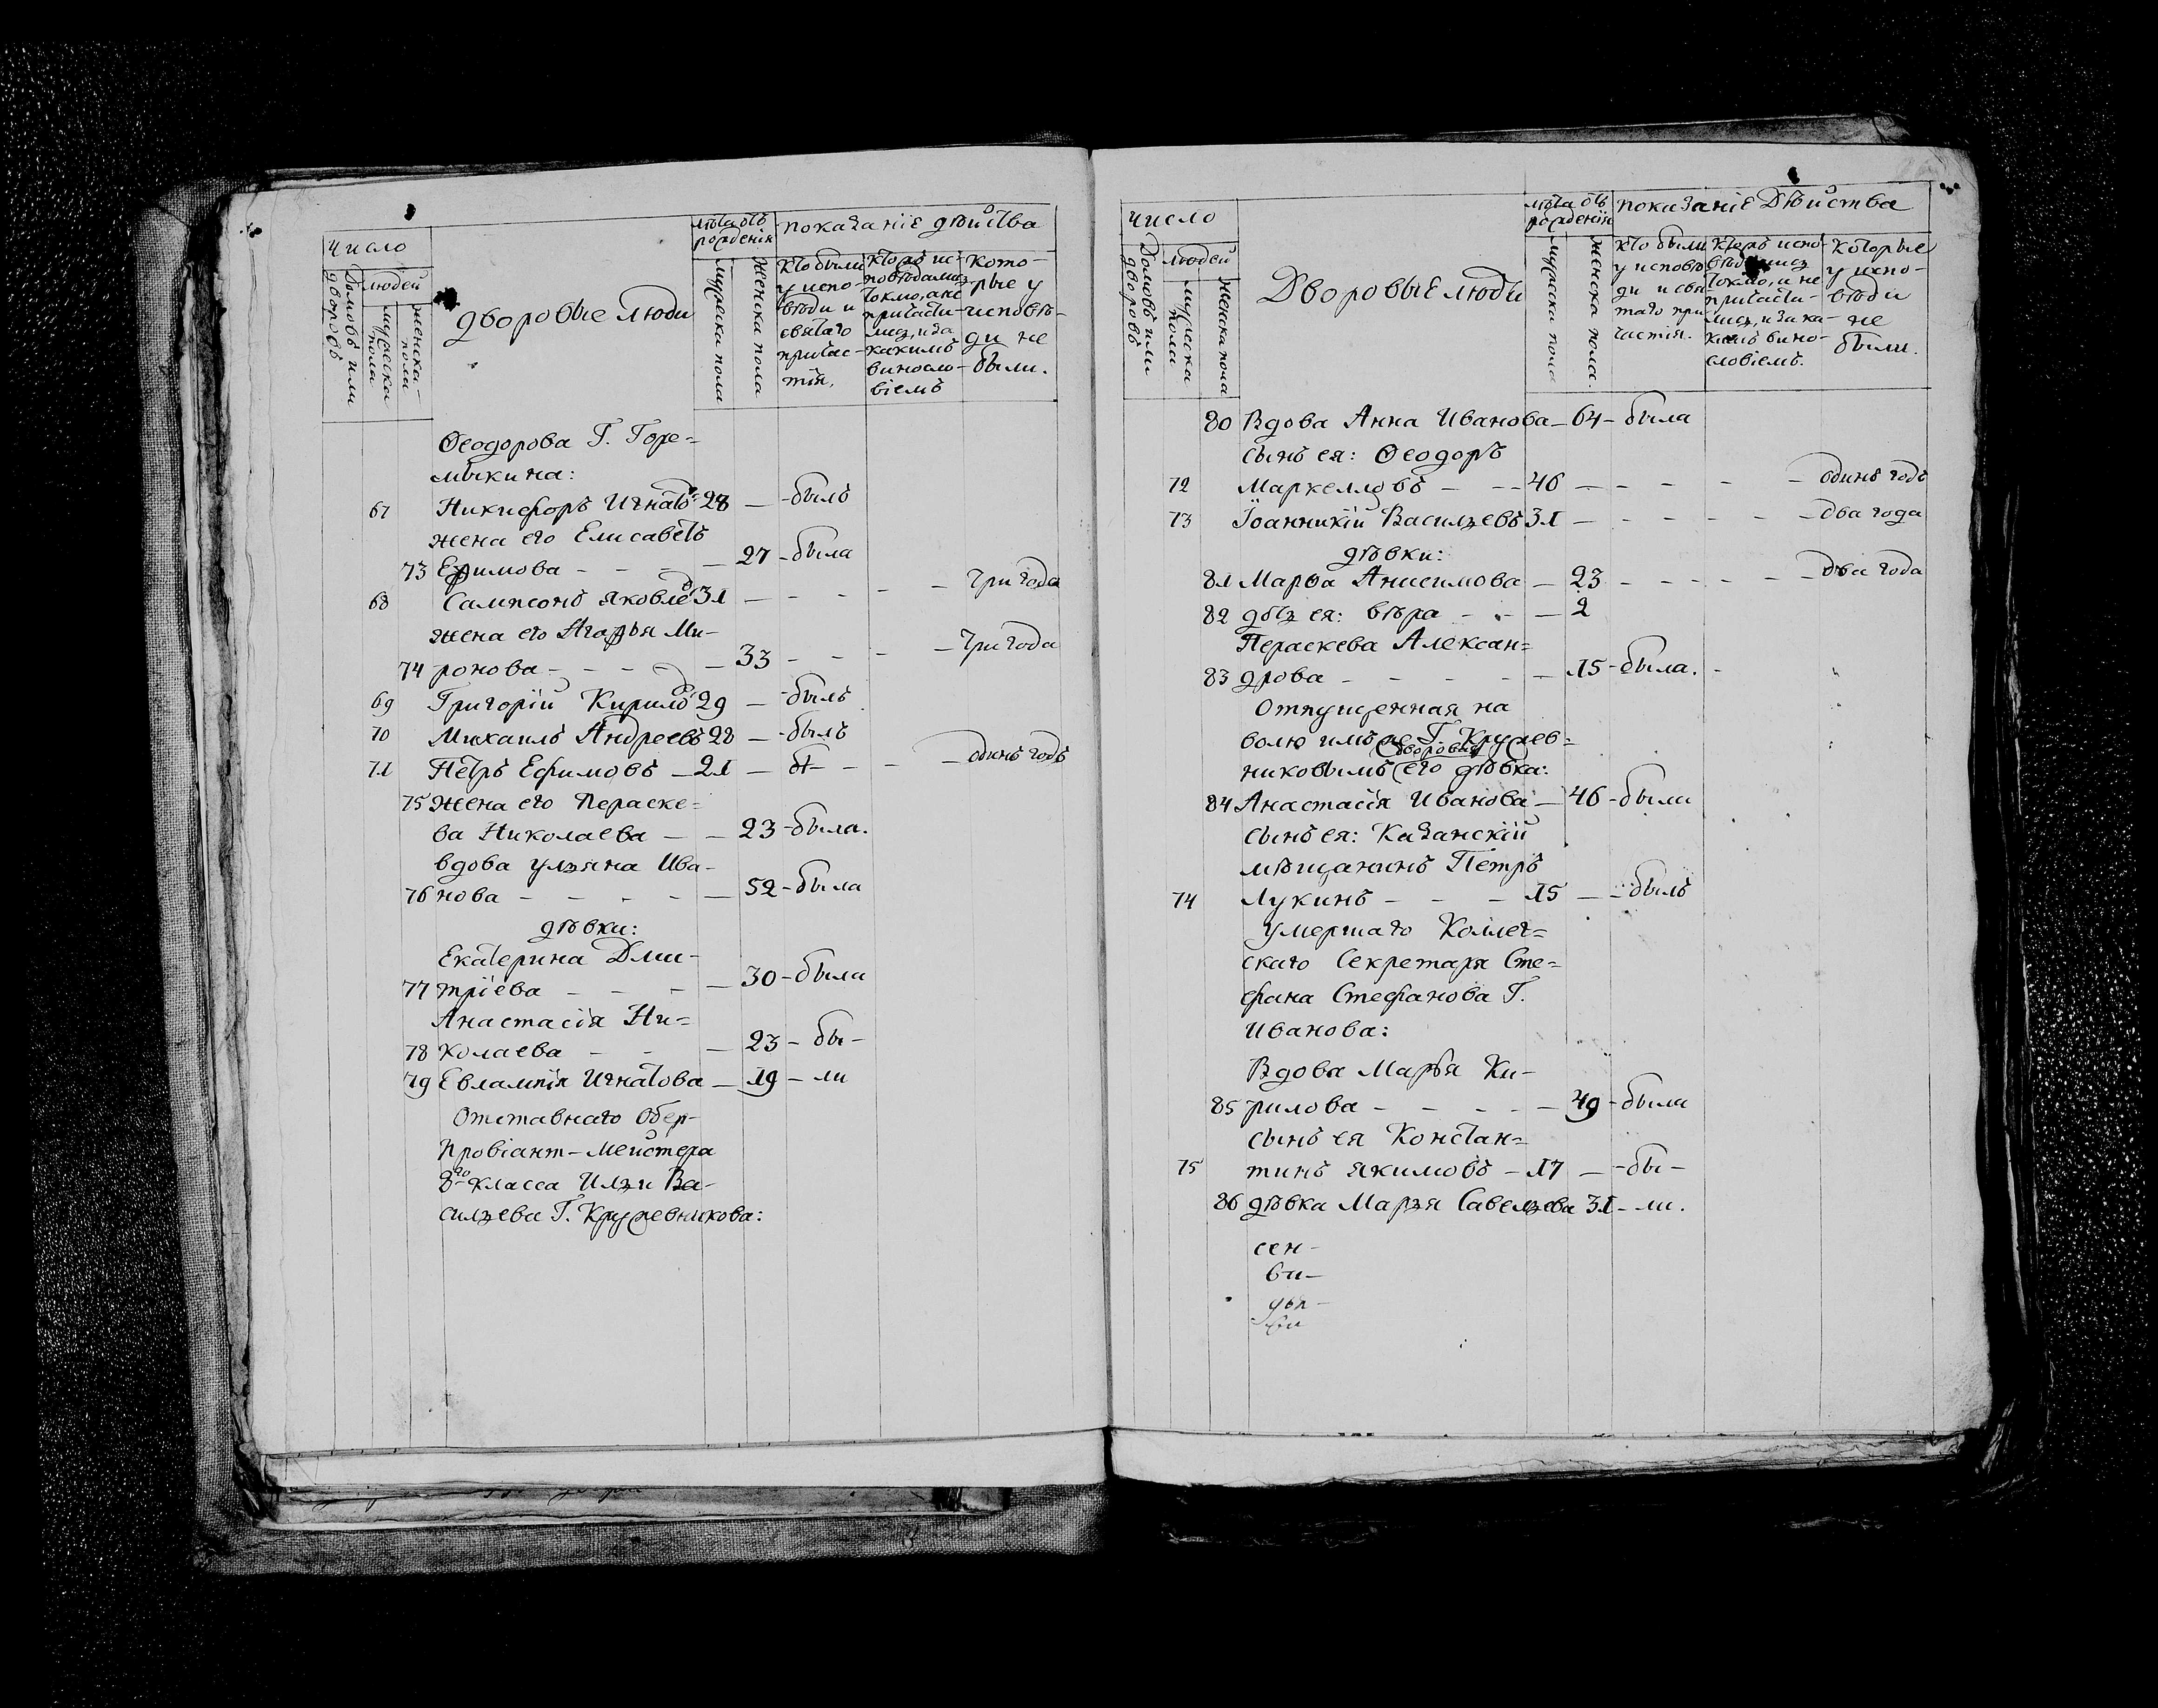 число
Домовъ или дворовъ
людей
мужеска пола
женска пола
дворовые люди
лѣта отъ рожденія
мужеска пола
женска пола
показаніе дѣйства
Кто были у испо-
вѣди и
святаго
причас-
тія.
Кто же ис-
повѣдались
токмо, а не
причасти-
лись, и за
какимъ
винословіемъ
Кото-
рые у
исповѣ-
ди не
были.
Ѳеодорова Г. Горе=
мыкина:
67 Никифоръ Игнатьевъ 28 — - былъ
жена его Елисаветъ
73 Ефимова - - - - 27 - была
68 Сампсонъ Яковлевъ 31 — - - - - три года
жена его Агафья Ми-
74 ронова - - - - 33 - - - - три года
69 Григорій Кириловъ 29 — - былъ
70 Михаилъ Андреевъ 28 — - былъ
71 Петръ Ефимовъ — 21 — - - - одинъ годъ
75 жена его Пераске=
ва Николаева — — 23 - была.
вдова Ульяна Ива-
76 нова - - - - - — 52 - была
дѣвки:
Екатерина Дми-
77 тріева - - - — 30 - была
Анастасія Ни=
78 колаева - - — 23 - бы-
79 Евлампія Игнатова — 19 - ли
Отставнаго Обер-
Провіант-мейстера
8го класса Ильи Ва-
сильева Г. Кружевникова:
число
Домовъ или дворовъ
людей
мужеска пола
женска пола
Дворовые люди
лѣта отъ рожденія
мужеска пола
женска пола.
показаніе Дѣйства
Кто были
у исповѣ-
ди и свя-
таго при-
частія.
Кто же испо-
вѣдались
токмо, и не
причасти-
лись, и за ка-
кимъ вино-
словіемъ.
Которые
у испо-
вѣди
не
были.
80 Вдова Анна Иванова — 64 - была
сынъ ея: Ѳеодоръ
72 Маркелловъ - - - 46 — - - - - одинъ годъ
73 Іоанникій Васильевъ 31 — - - - - два года
дѣвки:
81 Марѳа Анисимова — 23 - - - - - два года
82 дочь ея: Вѣра - - — 2
Пераскева Алексан=
83 дрова - - - - — 15 - была.
Отпущенная на
волю имъ же Г. Кружев=
дворовая
никовымъ его дѣвка:
84 Анастасія Иванова — 46 - была
сынъ ея: Казанскій
мѣщанинъ Петръ
74 Лукинъ - - - 15 — - былъ
умершаго Коллеж=
скаго Секретаря Сте=
фана Стефанова Г.
Иванова:
Вдова Марѳа Ки-
85 рилова - - - - — 49 - была
сынъ ея Констан=
75 тинъ Якимовъ — 17 — - бы-
86 дѣвка Марья Савельева 31 - ли.
сен-
ви-